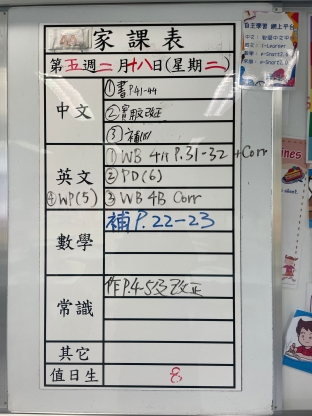 家課表
第五週二月十八日(星期二)
中文
①書P.41-44
②實版改正
③補(四)
英文
①WB 4A P.31-32 +Corr
②PD(6)
④WP(5)
③WB 4B Corr
數學
補P.22-23
常識
作P.4-5改正
其它
值日生
8
自主學習 網上平台